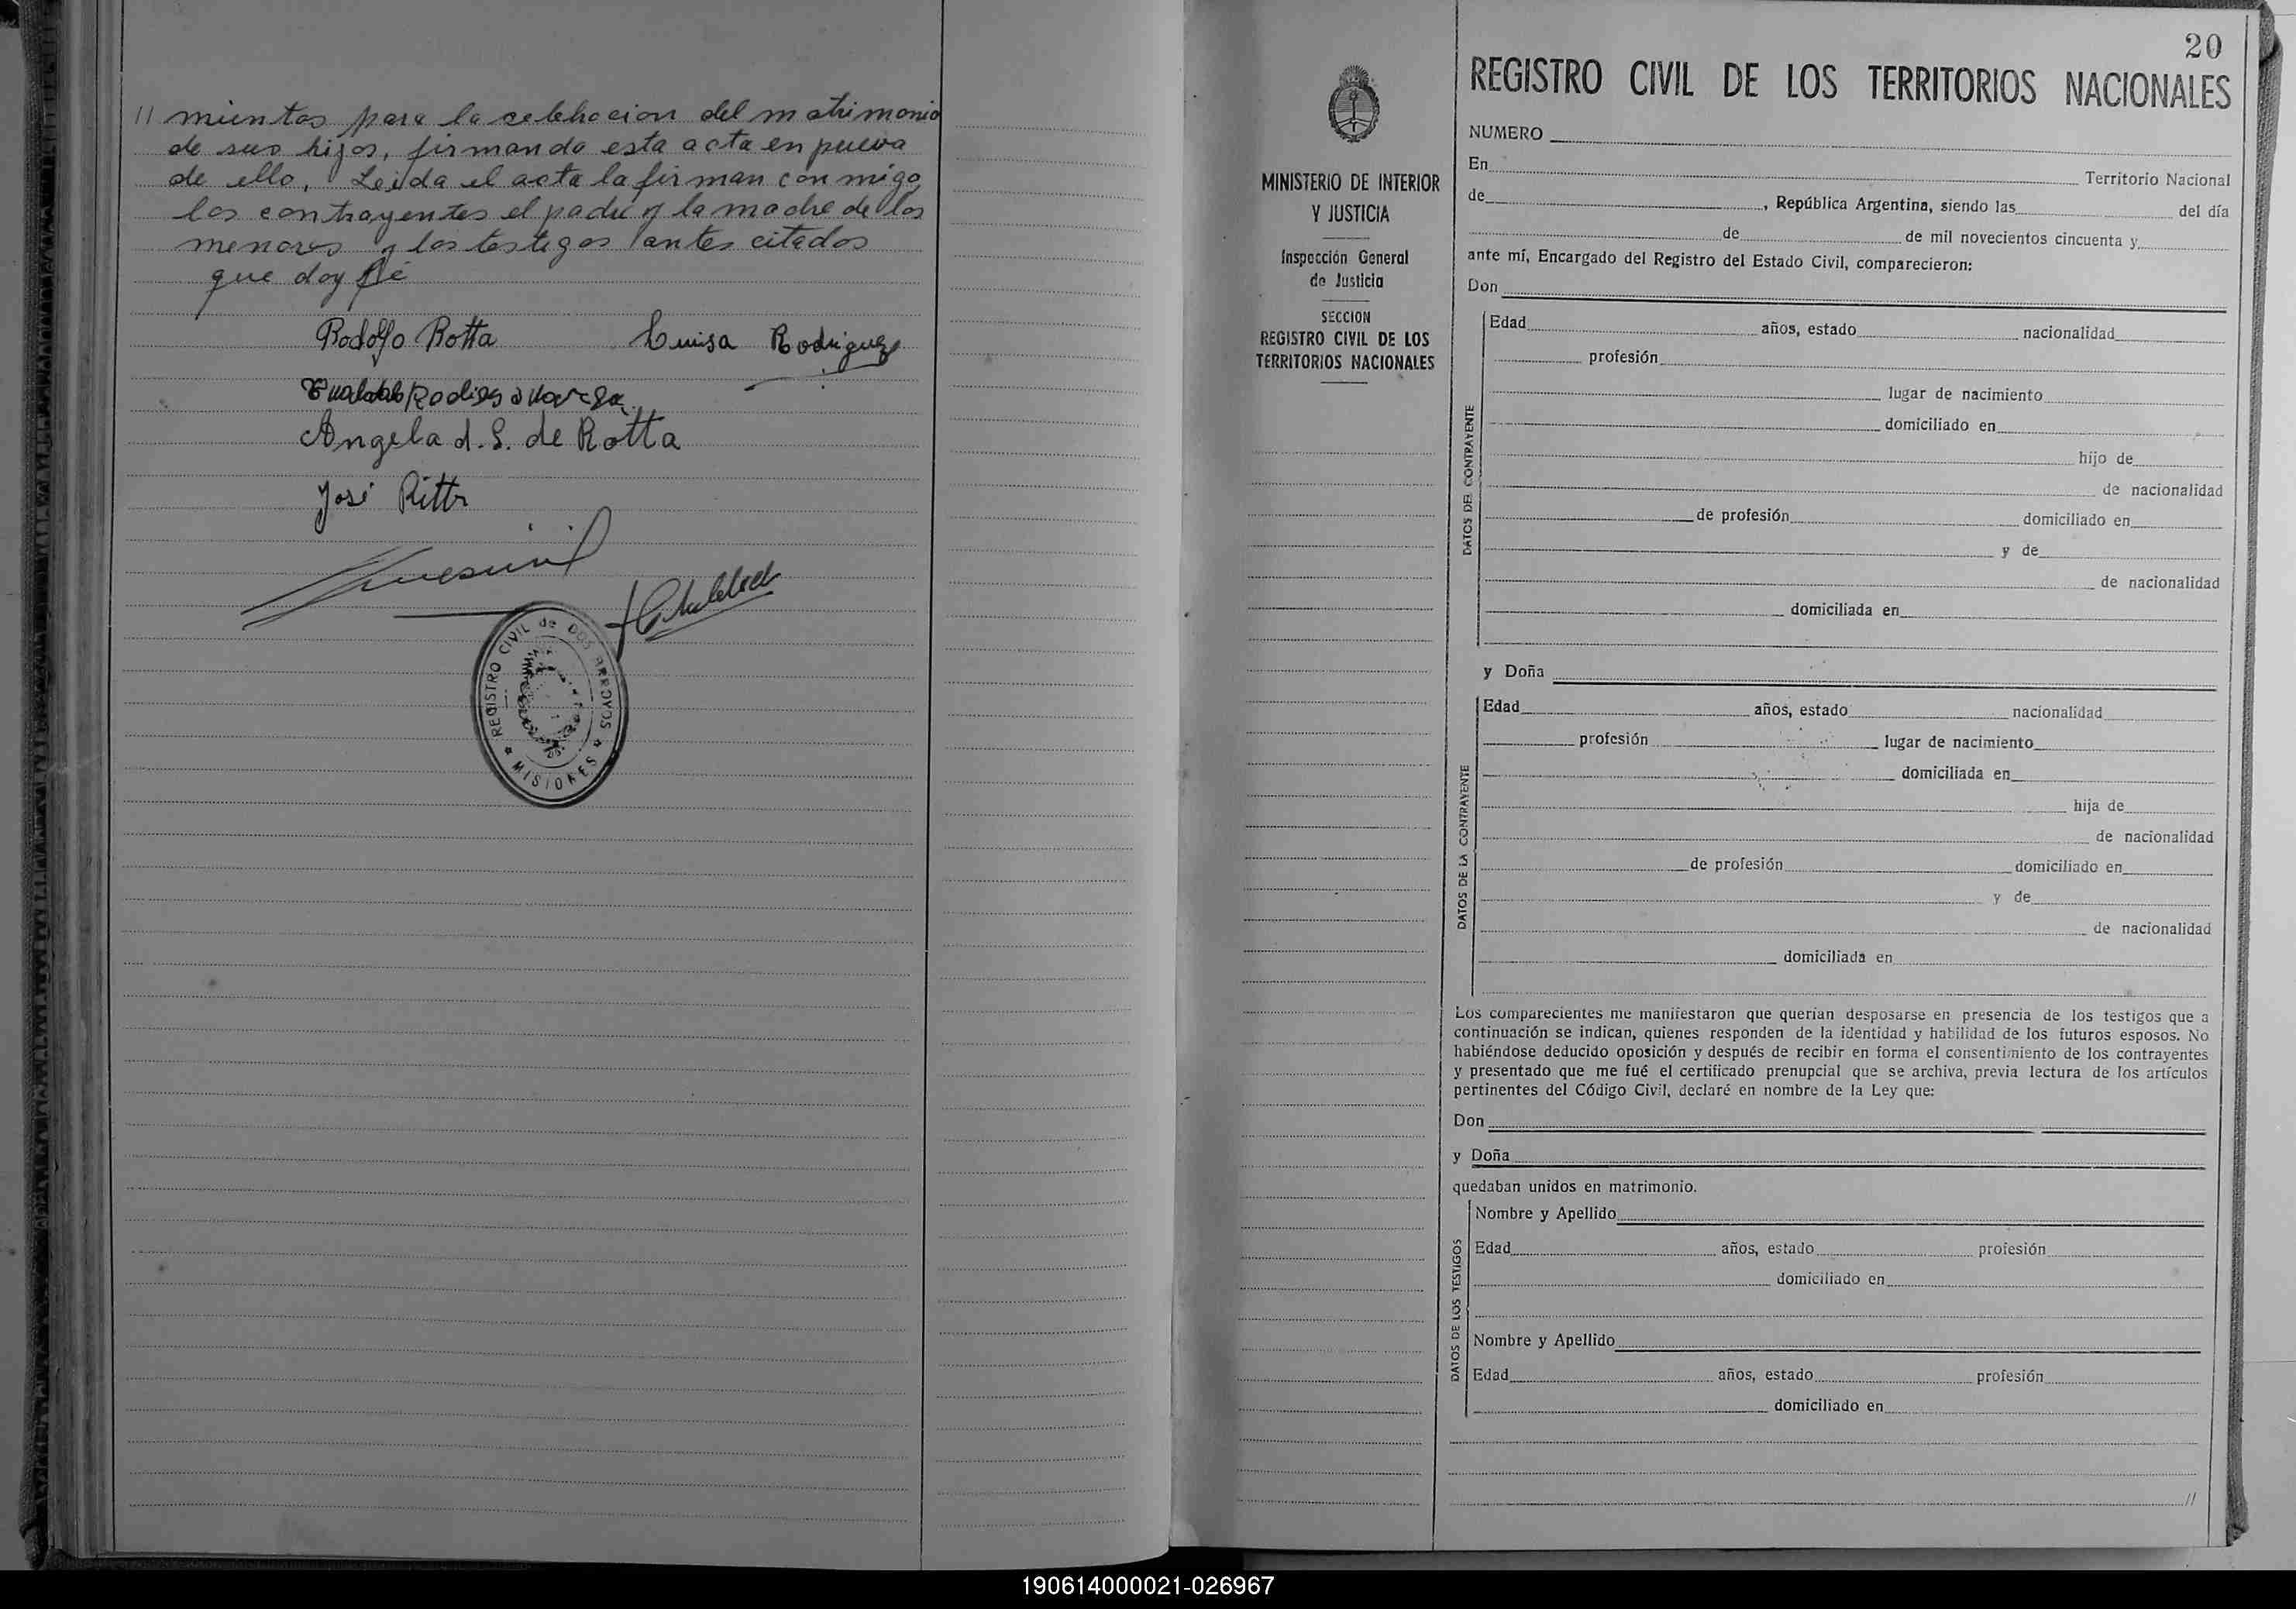 // mientos para la celebracion del matrimonio
de sus hijos, firmando esta acta en prueva
de ello, Leida el acta la firman con migo,
los contrayentes el padre y la madre de los
menores y los testigos antes citados
que doy fé
Rodolfo Rotta Luisa Rodriguez
Angela d. S. de Rotta
José
REGISTRO CIVIL de DOS ARROYOS
* MISIONES *
20
REGISTRO CIVIL DE LOS TERRITORIOS NACIONALES
MINISTERIO DE INTERIOR
Y JUSTICIA
Inspección General
de Justicia
SECCION
REGISTRO CIVIL DE LOS
TERRITORIOS NACIONALES
NUMERO
En Territorio Nacional
de , República Argentina, siendo las del día
de de mil novecientos cincuenta y
ante mí, Encargado del Registro del Estado Civil, comparecieron:
Don
DATOS DEL CONTRAYENTE
Edad años, estado nacionalidad
profesión
lugar de nacimiento
domiciliado en
hijo de
de nacionalidad
de profesión domiciliado en
y de
de nacionalidad
domiciliada en
y Doña
DATOS DE LA CONTRAYENTE
Edad años, estado nacionalidad
profesión lugar de nacimiento
domiciliada en
hija de
de nacionalidad
de profesión domiciliado en
y de
de nacionalidad
domiciliada en
Los comparecientes me manifestaron que querían desposarse en presencia de los testigos que a
continuación se indican, quienes responden de la identidad y habilidad de los futuros esposos. No
habiéndose deducido oposición y después de recibir en forma el consentimiento de los contrayentes
y presentado que me fué el certificado prenupcial que se archiva, previa lectura de los artículos
pertinentes del Código Civil, declaré en nombre de la Ley que:
Don
y Doña
quedaban unidos en matrimonio.
DATOS DE LOS TESTIGOS
Nombre y Apellido
Edad años, estado profesión
domiciliado en
Nombre y Apellido
Edad años, estado profesión
domiciliado en
//
190614000021-026967